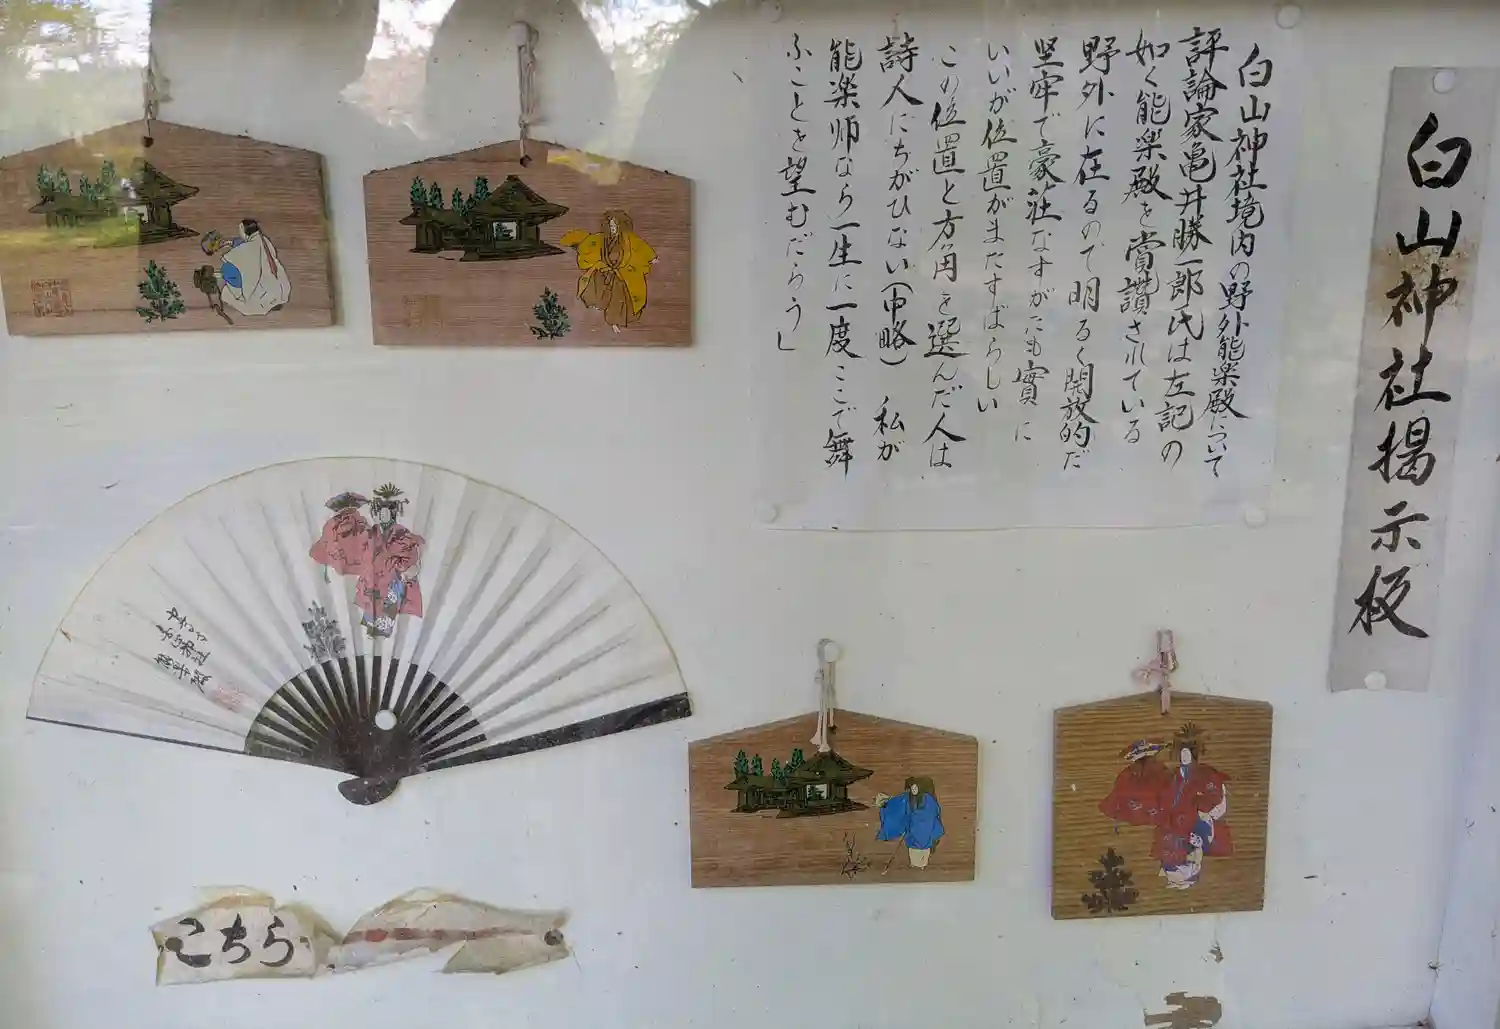 白山神社掲示板
白山神社境内の野外能楽殿について
評論家亀井勝一郎氏は左記の
如く能楽殿を賞讃されている
野外に在るので明るく開放的だ
堅牢で豪荘なすがたも實に
いいが位置がまたすばらしい
この位置と方角を選んだ人は
詩人にちがひない(中略) 私が
能楽师なら一生に一度ここで舞
ふことを望むだらう」
こちら